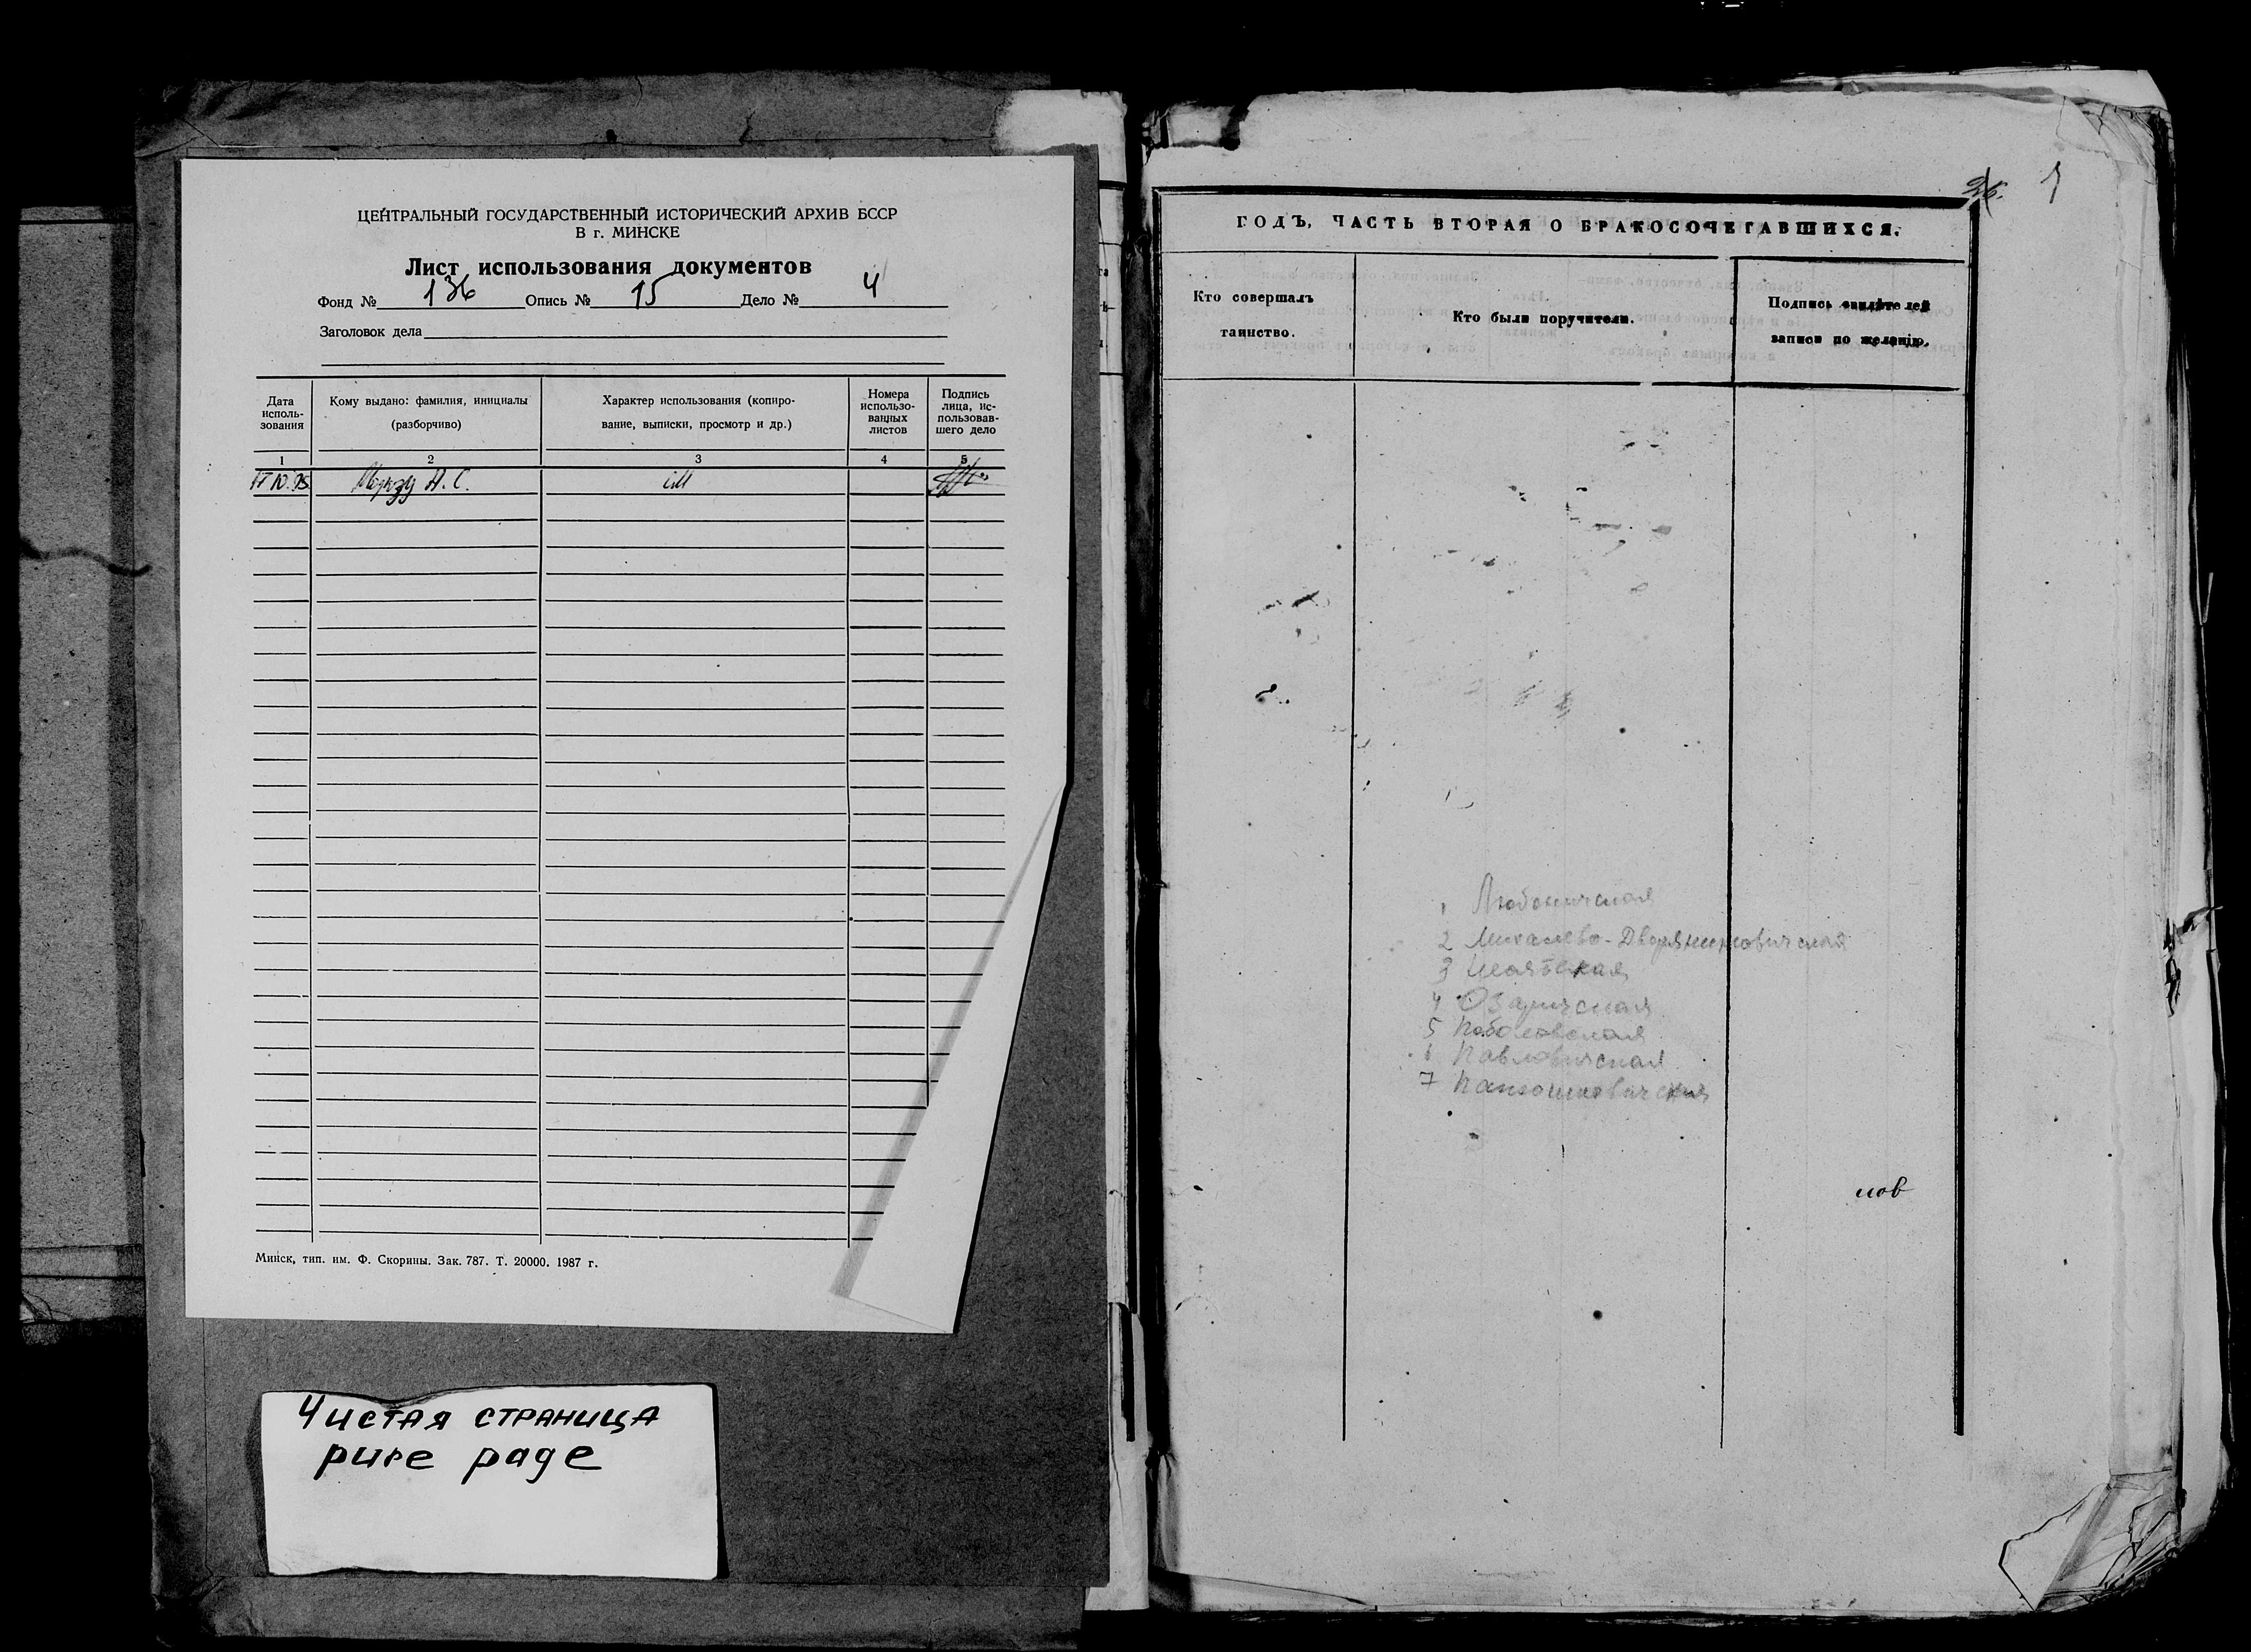 ЦЕНТРАЛЬНЫЙ ГОСУДАРСТВЕННЫЙ ИСТОРИЧЕСКИЙ АРХИВ БССР
В г. МИНСКЕ
Лист использования документов
Фонд № 136 Опись № 15 Дело № 4
Заголовок дела
Дата исполь-зования
Кому выдано: фамилия, инициалы (разборчиво)
Характер использования (копиро-вание, выписки, просмотр и др.)
Номера использо-ванных листов
Подпись лица, ис-пользовав-шего дело
1 2 3 4 5
17.10.95 А. С.
Минск, тип. им. Ф. Скорины. Зак. 787. Т. 20000. 1987 г.
Чистая страница
pure page
1
ГОДЪ, ЧАСТЬ ВТОРАЯ О БРАКОСОЧЕТАВШИХСЯ.
Кто совершалъ таинство.
Кто были поручители.
Подпись свидѣтелей записи по желанію.
1 Любоничская
2 Михалево-Дворяниновичская
3
4 Озаричская
5 Поболовская
6 Павловичская
7
нов